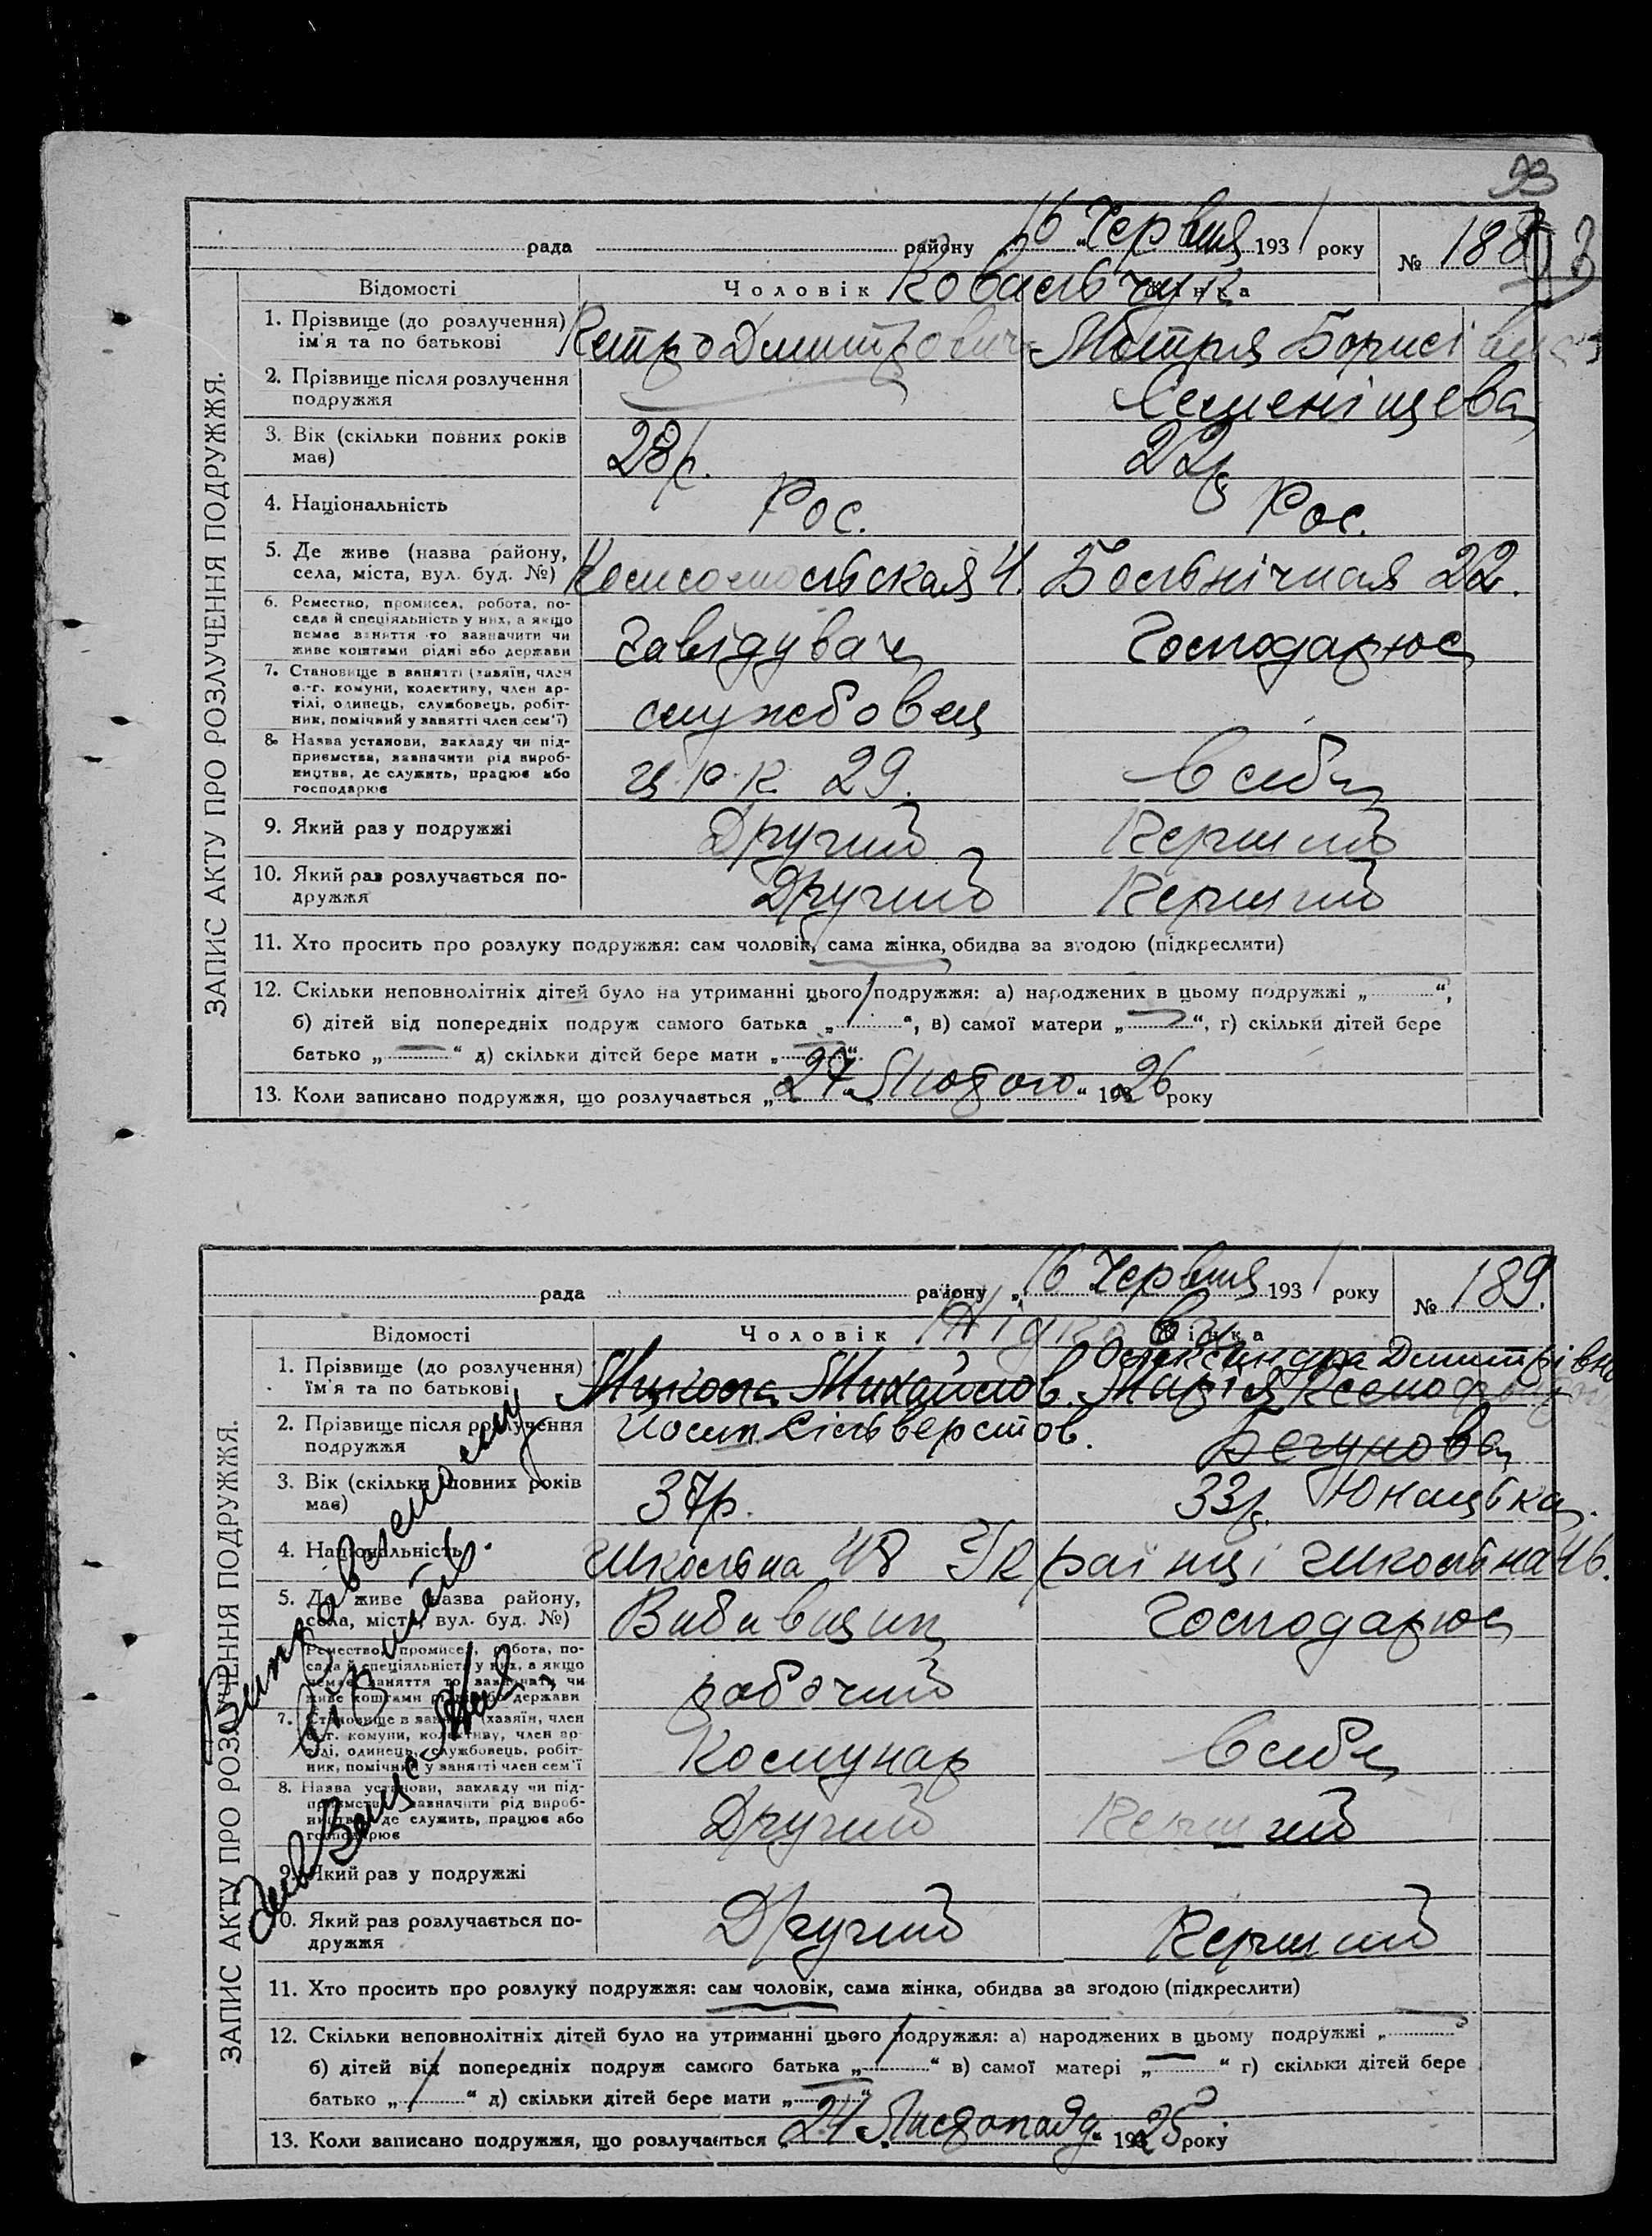 93
рада району „16 „Червня 1931 року № 188
93
ЗАПИС АКТУ ПРО РОЗЛУЧЕННЯ ПОДРУЖЖЯ.
Відомості Чоловік Ковальчук Жінка
1. Прізвище (до розлучення) ім'я та по батькові Петро Дмитрович Мотря Борисівна
2. Прізвище після розлучення подружжя Семеніщева
3. Вік (скільки повних років має) 28 р. 22 р.
4. Національність Рос. Рос.
5. Де живе (назва району, села, міста, вул. буд. №) Комсомольская 4. Больнічная 22.
6. Ремество, промисел, робота, посада й спеціяльність у них, а якщо немає заняття то зазначити чи живе коштами рідні або держави Завідувач Господарює
7. Становище в занятті (хазяїн, член с.-г. комуни, колективу, член артілі, одинець, службовець, робітник, помічний у занятті член сем'ї) службовец
8. Назва установи, закладу чи підприємства, зазначити рід виробництва, де служить, працює або господарює Ц.Р.К. 29. В себе
9. Який раз у подружжі Другий Перший
10. Який раз розлучається подружжя Другий Перший
11. Хто просить про розлуку подружжя: сам чоловік, сама жінка, обидва за згодою (підкреслити)
12. Скільки неповнолітніх дітей було на утриманні цього подружжя: а) народжених в цьому подружжі „ — “,
б) дітей від попередніх подруж самого батька „ / “, в) самої матери „ — “, г) скільки дітей бере
батько „ — “ д) скільки дітей бере мати „ — “.
13. Коли записано подружжя, що розлучається „27 „Лютого “ 1926 року
рада району „16 Червня 1931 року № 189.
ЗАПИС АКТУ ПРО РОЗЛУЧЕННЯ ПОДРУЖЖЯ.
Відомості Чоловік Жінка
Олександра Дмитрівна
1. Прізвище (до розлучення) їм'я та по батькові Микола Михайлов. Марія
2. Прізвище після розлучення подружжя Йосип Сільверстов. Бегунова
3. Вік (скільки повних років має) 37р. 33р. Юнацька.
4. Національність Шкільна 48 Українці Шкільна 46.
5. Де живе (назва району, села, міста, вул. буд. №) Вибивщик Господарює
Ремество, промисел, робота, посада й спеціяльність у них, а якщо немає заняття то зазначити чи живе коштами рідні або держави рабочий
7. Становище в занятті (хазяїн, член с.-г. комуни, колективу, член артілі, одинець, службовець, робітник, помічний у занятті член сем'ї Комунар В себе
8. Назва установи, закладу чи підприємства, зазначити рід виробництва, де служить, працює або господарює Другий Перший
9. Який раз у подружжі
10. Який раз розлучається подружжя Другий Перший
11. Хто просить про розлуку подружжя: сам чоловік, сама жінка, обидва за згодою (підкреслити)
12. Скільки неповнолітніх дітей було на утриманні цього подружжя: а) народжених в цьому подружжі „ — “
б) дітей від попередніх подруж самого батька „ / “ в) самої матері „ — “ г) скільки дітей бере
батько „ / “ д) скільки дітей бере мати „ — “
13. Коли записано подружжя, що розлучається „24 „Листопада“ 1925 року